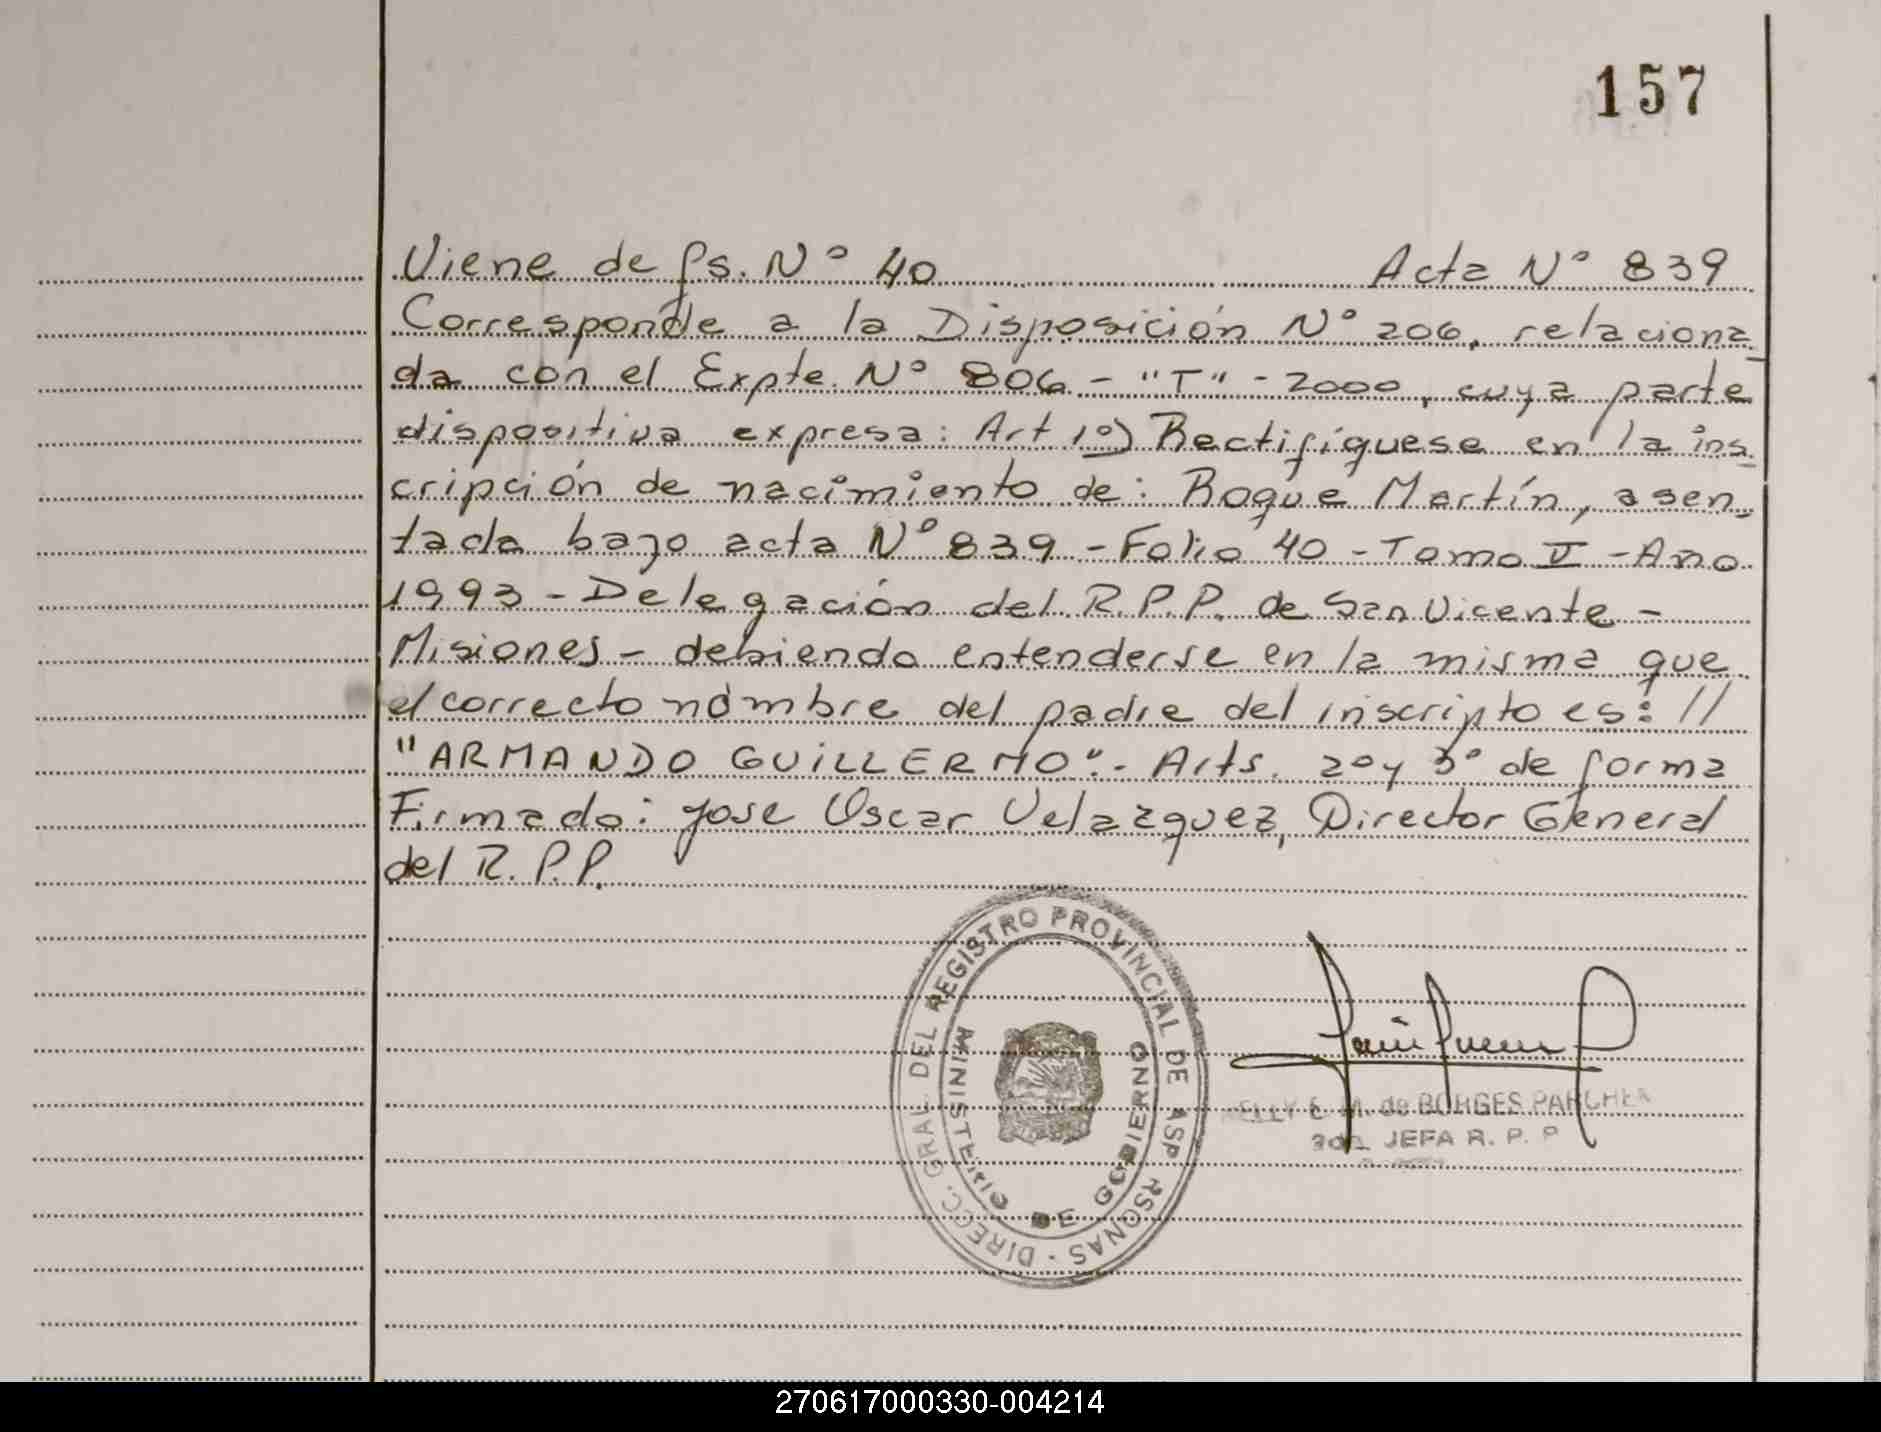 157
Viene de fs. Nº 40 Acta Nº 839
Corresponde a la Disposición Nº 206, relaciona-
da con el Expte. Nº 806 - "T" - 2000, cuya parte
dispositiva expresa: Art 1º) Rectifíquese en la ins-
cripción de nacimiento de: Roque Martín, asen-
tada bajo acta Nº 839 - Folio 40 - Tomo V - Año
1993 - Delegación del R.P.P. de San Vicente -
Misiones - debiendo entenderse en la misma que
el correcto nombre del padre del inscripto es: //
"ARMANDO GUILLERMO".- Arts. 2º y 3º de forma
Firmado: Jose Oscar Velazquez, Director General
del R.P.P.
DIRECC. GRAL. DEL REGISTRO PROVINCIAL DE PERSONAS
MINISTERIO DE GOBIERNO
E. M. de BORGES PARCHEN
JEFA R. P. P
270617000330-004214